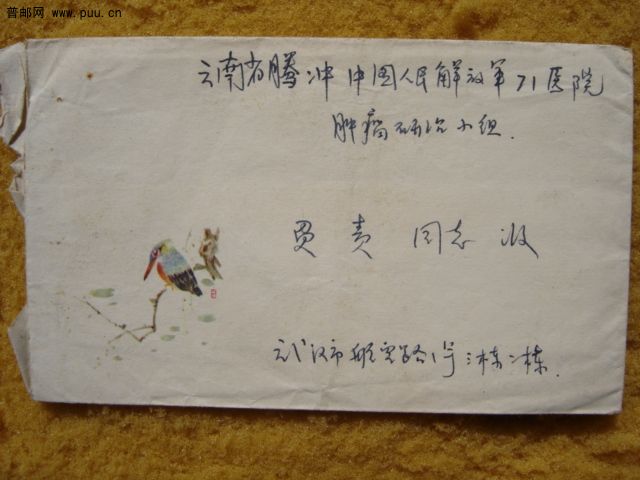 普邮网 www.puu.cn
云南省腾冲中国人民解放军71医院
肿瘤研治小组.
负责同志收
武汉市航空路1号三栋二栋.